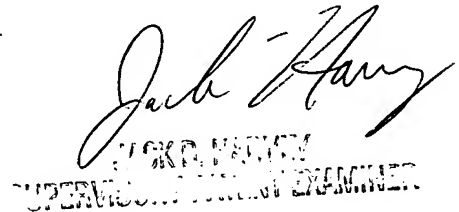 Jack Harvey
JACK D. HARVEY
SUPERVISORY PATENT EXAMINER